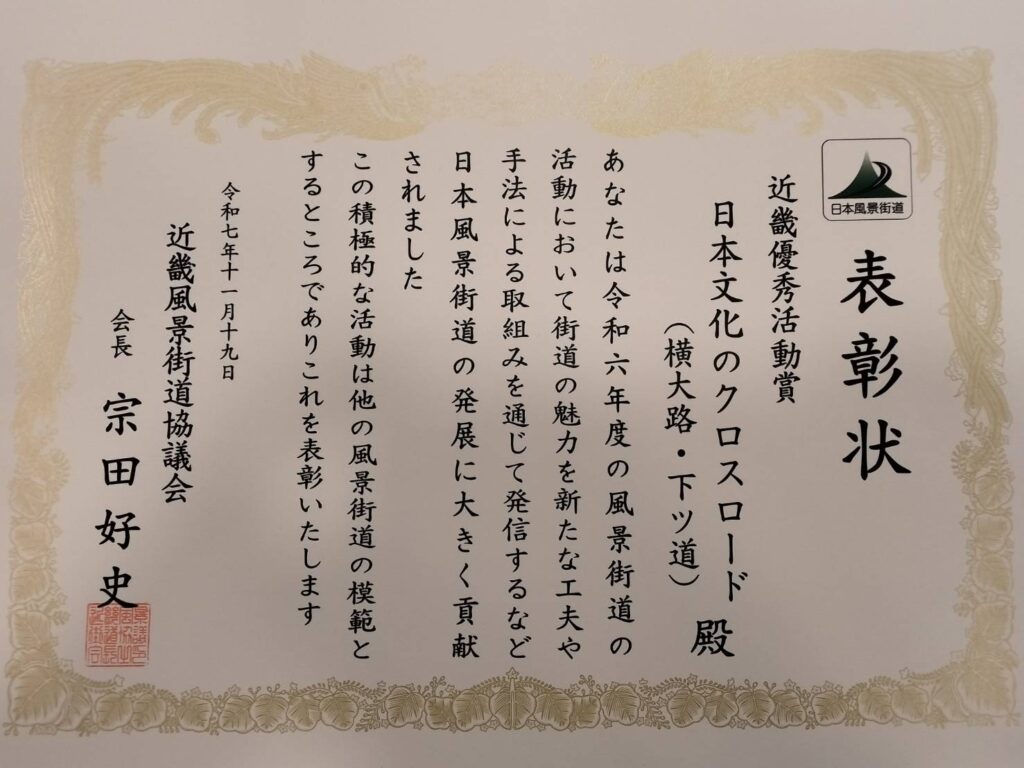 日本風景街道
表彰状
近畿優秀活動賞
日本文化のクロスロード
（横大路・下ツ道）殿
あなたは令和六年度の風景街道の
活動において街道の魅力を新たな工夫や
手法による取組みを通じて発信するなど
日本風景街道の発展に大きく貢献
されました
この積極的な活動は他の風景街道の模範と
するところでありこれを表彰いたします
令和七年十一月十九日
近畿風景街道協議会
会長 宗田好史